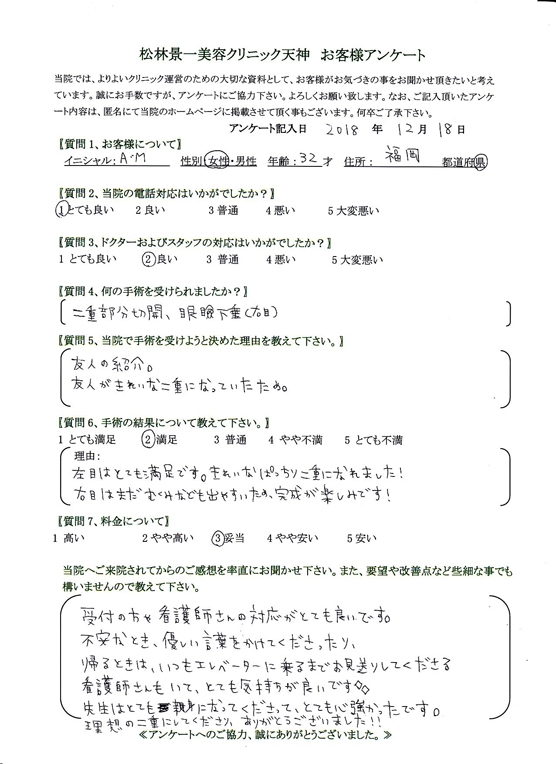 松林景一美容クリニック天神 お客様アンケート
当院では、よりよいクリニック運営のための大切な資料として、お客様がお気づきの事をお聞かせ頂きたいと考え
ています。誠にお手数ですが、アンケートにご協力下さい。よろしくお願い致します。なお、ご記入頂いたアンケ
ート内容は、匿名にて当院のホームページに掲載させて頂く事もございます。何卒ご了承下さい。
アンケート記入日 2018 年 12 月 18 日
〖質問1、お客様について〗
イニシャル: A・M 性別 女性・男性 年齢: 32 才 住所: 福岡 都道府県
〖質問2、当院の電話対応はいかがでしたか?〗
1とても良い 2良い 3普通 4悪い 5大変悪い
〖質問3、ドクターおよびスタッフの対応はいかがでしたか?〗
1 とても良い 2良い 3 普通 4悪い 5大変悪い
〖質問4、何の手術を受けられましたか?〗
二重部分切開、眼瞼下垂(右目)
〖質問5、当院で手術を受けようと決めた理由を教えて下さい。〗
友人の紹介。
友人がきれいな二重になっていたため。
〖質問6、手術の結果について教えて下さい。〗
1 とても満足 2満足 3 普通 4 やや不満 5 とても不満
理由:
左目はとても満足です。きれいなぱっちり二重になれました!
右目はまだむくみなども出やすいため、完成が楽しみです!
〖質問7、料金について〗
1 高い 2 やや高い 3妥当 4 やや安い 5 安い
当院へご来院されてからのご感想を率直にお聞かせ下さい。また、要望や改善点など些細な事でも
構いませんので教えて下さい。
受付の方や看護師さんの対応がとても良いです。
不安なとき、優しい言葉をかけてくださったり、
帰るときは、いつもエレベーターに乗るまでお見送りしてくださる
看護師さんもいて、とても気持ちが良いです◇◇
先生はとても親身になってくださって、とても心強かったです。
理想の二重にしてくださり、ありがとうございました!!
≪アンケートへのご協力、誠にありがとうございました。≫